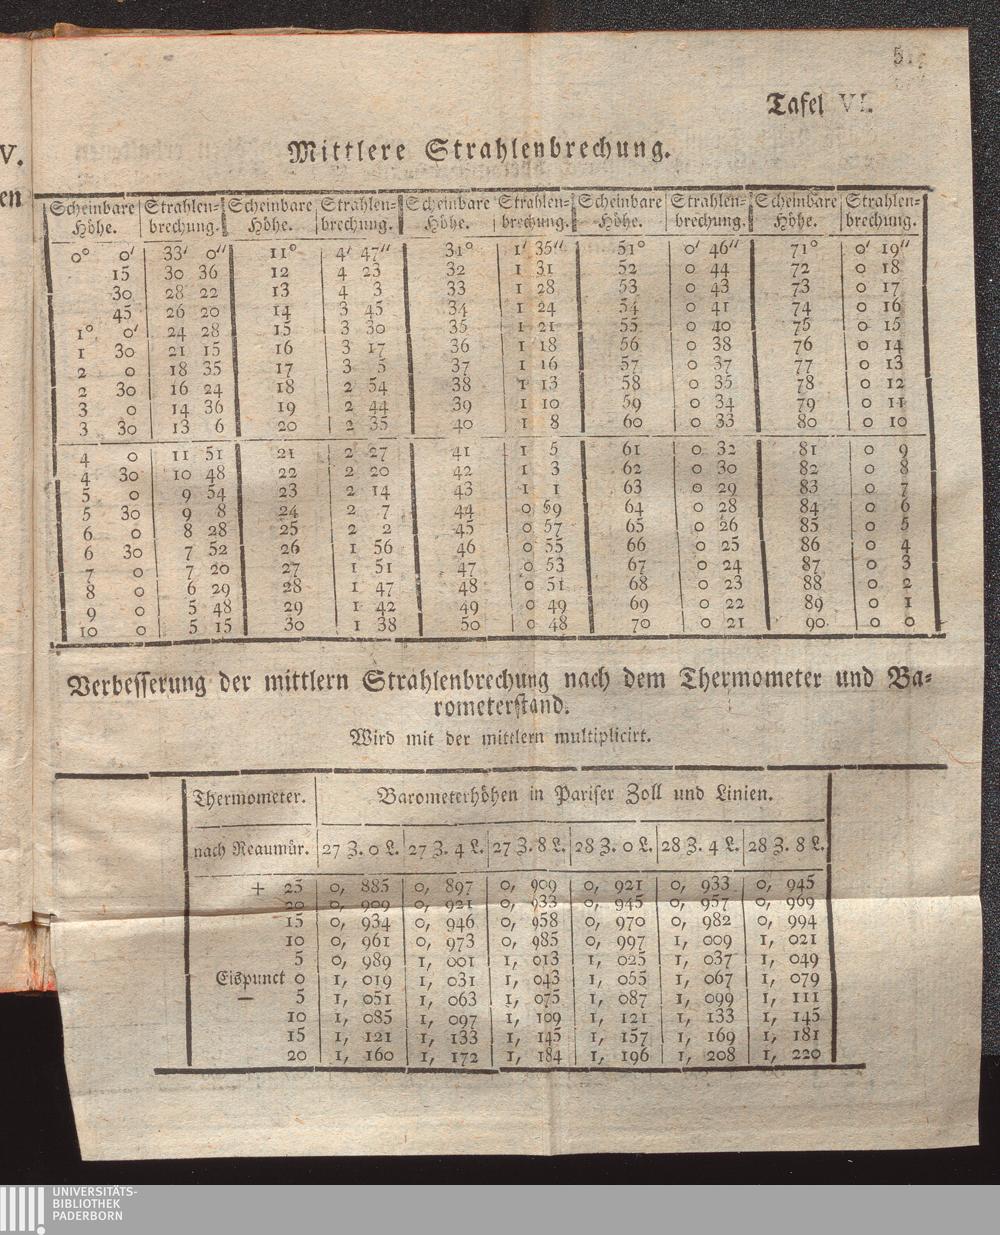 Tafel VI.
V.
Mittlere Strahlenbrechung.
en
Scheinbare Höhe. | Strahlen-brechung. | Scheinbare Höhe. | Strahlen-brechung. | Scheinbare Höhe. | Strahlen-brechung. | Scheinbare Höhe. | Strahlen-brechung. | Scheinbare Höhe. | Strahlen-brechung.
0° 0' | 33' 0'' | 11° | 4' 47'' | 31° | 1' 35'' | 51° | 0' 46'' | 71° | 0' 19''
15 | 30 36 | 12 | 4 23 | 32 | 1 31 | 52 | 0 44 | 72 | 0 18
30 | 28 22 | 13 | 4 3 | 33 | 1 28 | 53 | 0 43 | 73 | 0 17
45 | 26 20 | 14 | 3 45 | 34 | 1 24 | 54 | 0 41 | 74 | 0 16
1° 0' | 24 28 | 15 | 3 30 | 35 | 1 21 | 55 | 0 40 | 75 | 0 15
1 30 | 21 15 | 16 | 3 17 | 36 | 1 18 | 56 | 0 38 | 76 | 0 14
2 0 | 18 35 | 17 | 3 5 | 37 | 1 16 | 57 | 0 37 | 77 | 0 13
2 30 | 16 24 | 18 | 2 54 | 38 | 1 13 | 58 | 0 35 | 78 | 0 12
3 0 | 14 36 | 19 | 2 44 | 39 | 1 10 | 59 | 0 34 | 79 | 0 11
3 30 | 13 6 | 20 | 2 35 | 40 | 1 8 | 60 | 0 33 | 80 | 0 10
4 0 | 11 51 | 21 | 2 27 | 41 | 1 5 | 61 | 0 32 | 81 | 0 9
4 30 | 10 48 | 22 | 2 20 | 42 | 1 3 | 62 | 0 30 | 82 | 0 8
5 0 | 9 54 | 23 | 2 14 | 43 | 1 1 | 63 | 0 29 | 83 | 0 7
5 30 | 9 8 | 24 | 2 7 | 44 | 0 59 | 64 | 0 28 | 84 | 0 6
6 0 | 8 28 | 25 | 2 2 | 45 | 0 57 | 65 | 0 26 | 85 | 0 5
6 30 | 7 52 | 26 | 1 56 | 46 | 0 55 | 66 | 0 25 | 86 | 0 4
7 0 | 7 20 | 27 | 1 51 | 47 | 0 53 | 67 | 0 24 | 87 | 0 3
8 0 | 6 29 | 28 | 1 47 | 48 | 0 51 | 68 | 0 23 | 88 | 0 2
9 0 | 5 48 | 29 | 1 42 | 49 | 0 49 | 69 | 0 22 | 89 | 0 1
10 0 | 5 15 | 30 | 1 38 | 50 | 0 48 | 70 | 0 21 | 90 | 0 0
Verbesserung der mittlern Strahlenbrechung nach dem Thermometer und Ba-
rometerstand.
Wird mit der mittlern multiplicirt.
Thermometer. | Barometerhöhen in Pariser Zoll und Linien.
nach Reaumür. | 27 Z. 0 L. | 27 Z. 4 L. | 27 Z. 8 L. | 28 Z. 0 L. | 28 Z. 4 L. | 28 Z. 8 L.
+ 25 | 0, 885 | 0, 897 | 0, 909 | 0, 921 | 0, 933 | 0, 945
20 | 0, 909 | 0, 921 | 0, 933 | 0, 945 | 0, 957 | 0, 969
15 | 0, 934 | 0, 946 | 0, 958 | 0, 970 | 0, 982 | 0, 994
10 | 0, 961 | 0, 973 | 0, 985 | 0, 997 | 1, 009 | 1, 021
5 | 0, 989 | 1, 001 | 1, 013 | 1, 025 | 1, 037 | 1, 049
Eispunct 0 | 1, 019 | 1, 031 | 1, 043 | 1, 055 | 1, 067 | 1, 079
— 5 | 1, 051 | 1, 063 | 1, 075 | 1, 087 | 1, 099 | 1, 111
10 | 1, 085 | 1, 097 | 1, 109 | 1, 121 | 1, 133 | 1, 145
15 | 1, 121 | 1, 133 | 1, 145 | 1, 157 | 1, 169 | 1, 181
20 | 1, 160 | 1, 172 | 1, 184 | 1, 196 | 1, 208 | 1, 220
UNIVERSITÄTS-
BIBLIOTHEK
PADERBORN